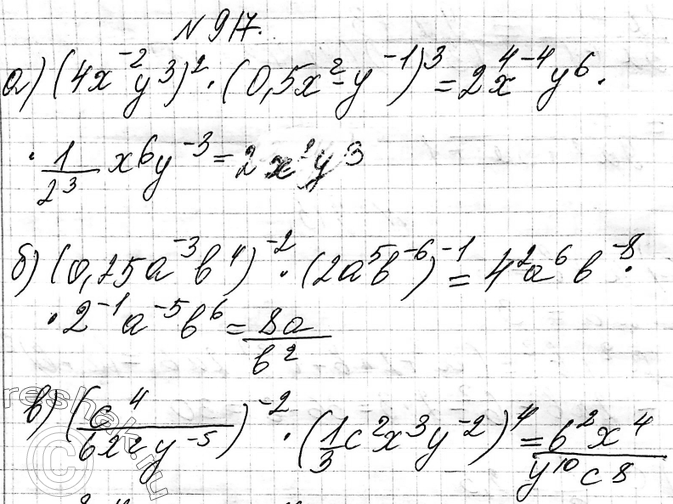 N 917.
а) (4x⁻²y³)² · (0,5x²y⁻¹)³ = 2⁴x⁻⁴y⁶ ·
· 1/2³ x⁶y⁻³ = 2x²y³
б) (0,25a⁻³b⁴)⁻² · (2a⁵b⁻⁶)⁻¹ = 4²a⁶b⁻⁸ ·
· 2⁻¹a⁻⁵b⁶ = 8a/b²
в) (c⁴/6x²y⁻⁵)⁻² · (1/3 c²x³y⁻²)⁴ = 6²x⁴/y¹⁰c⁸